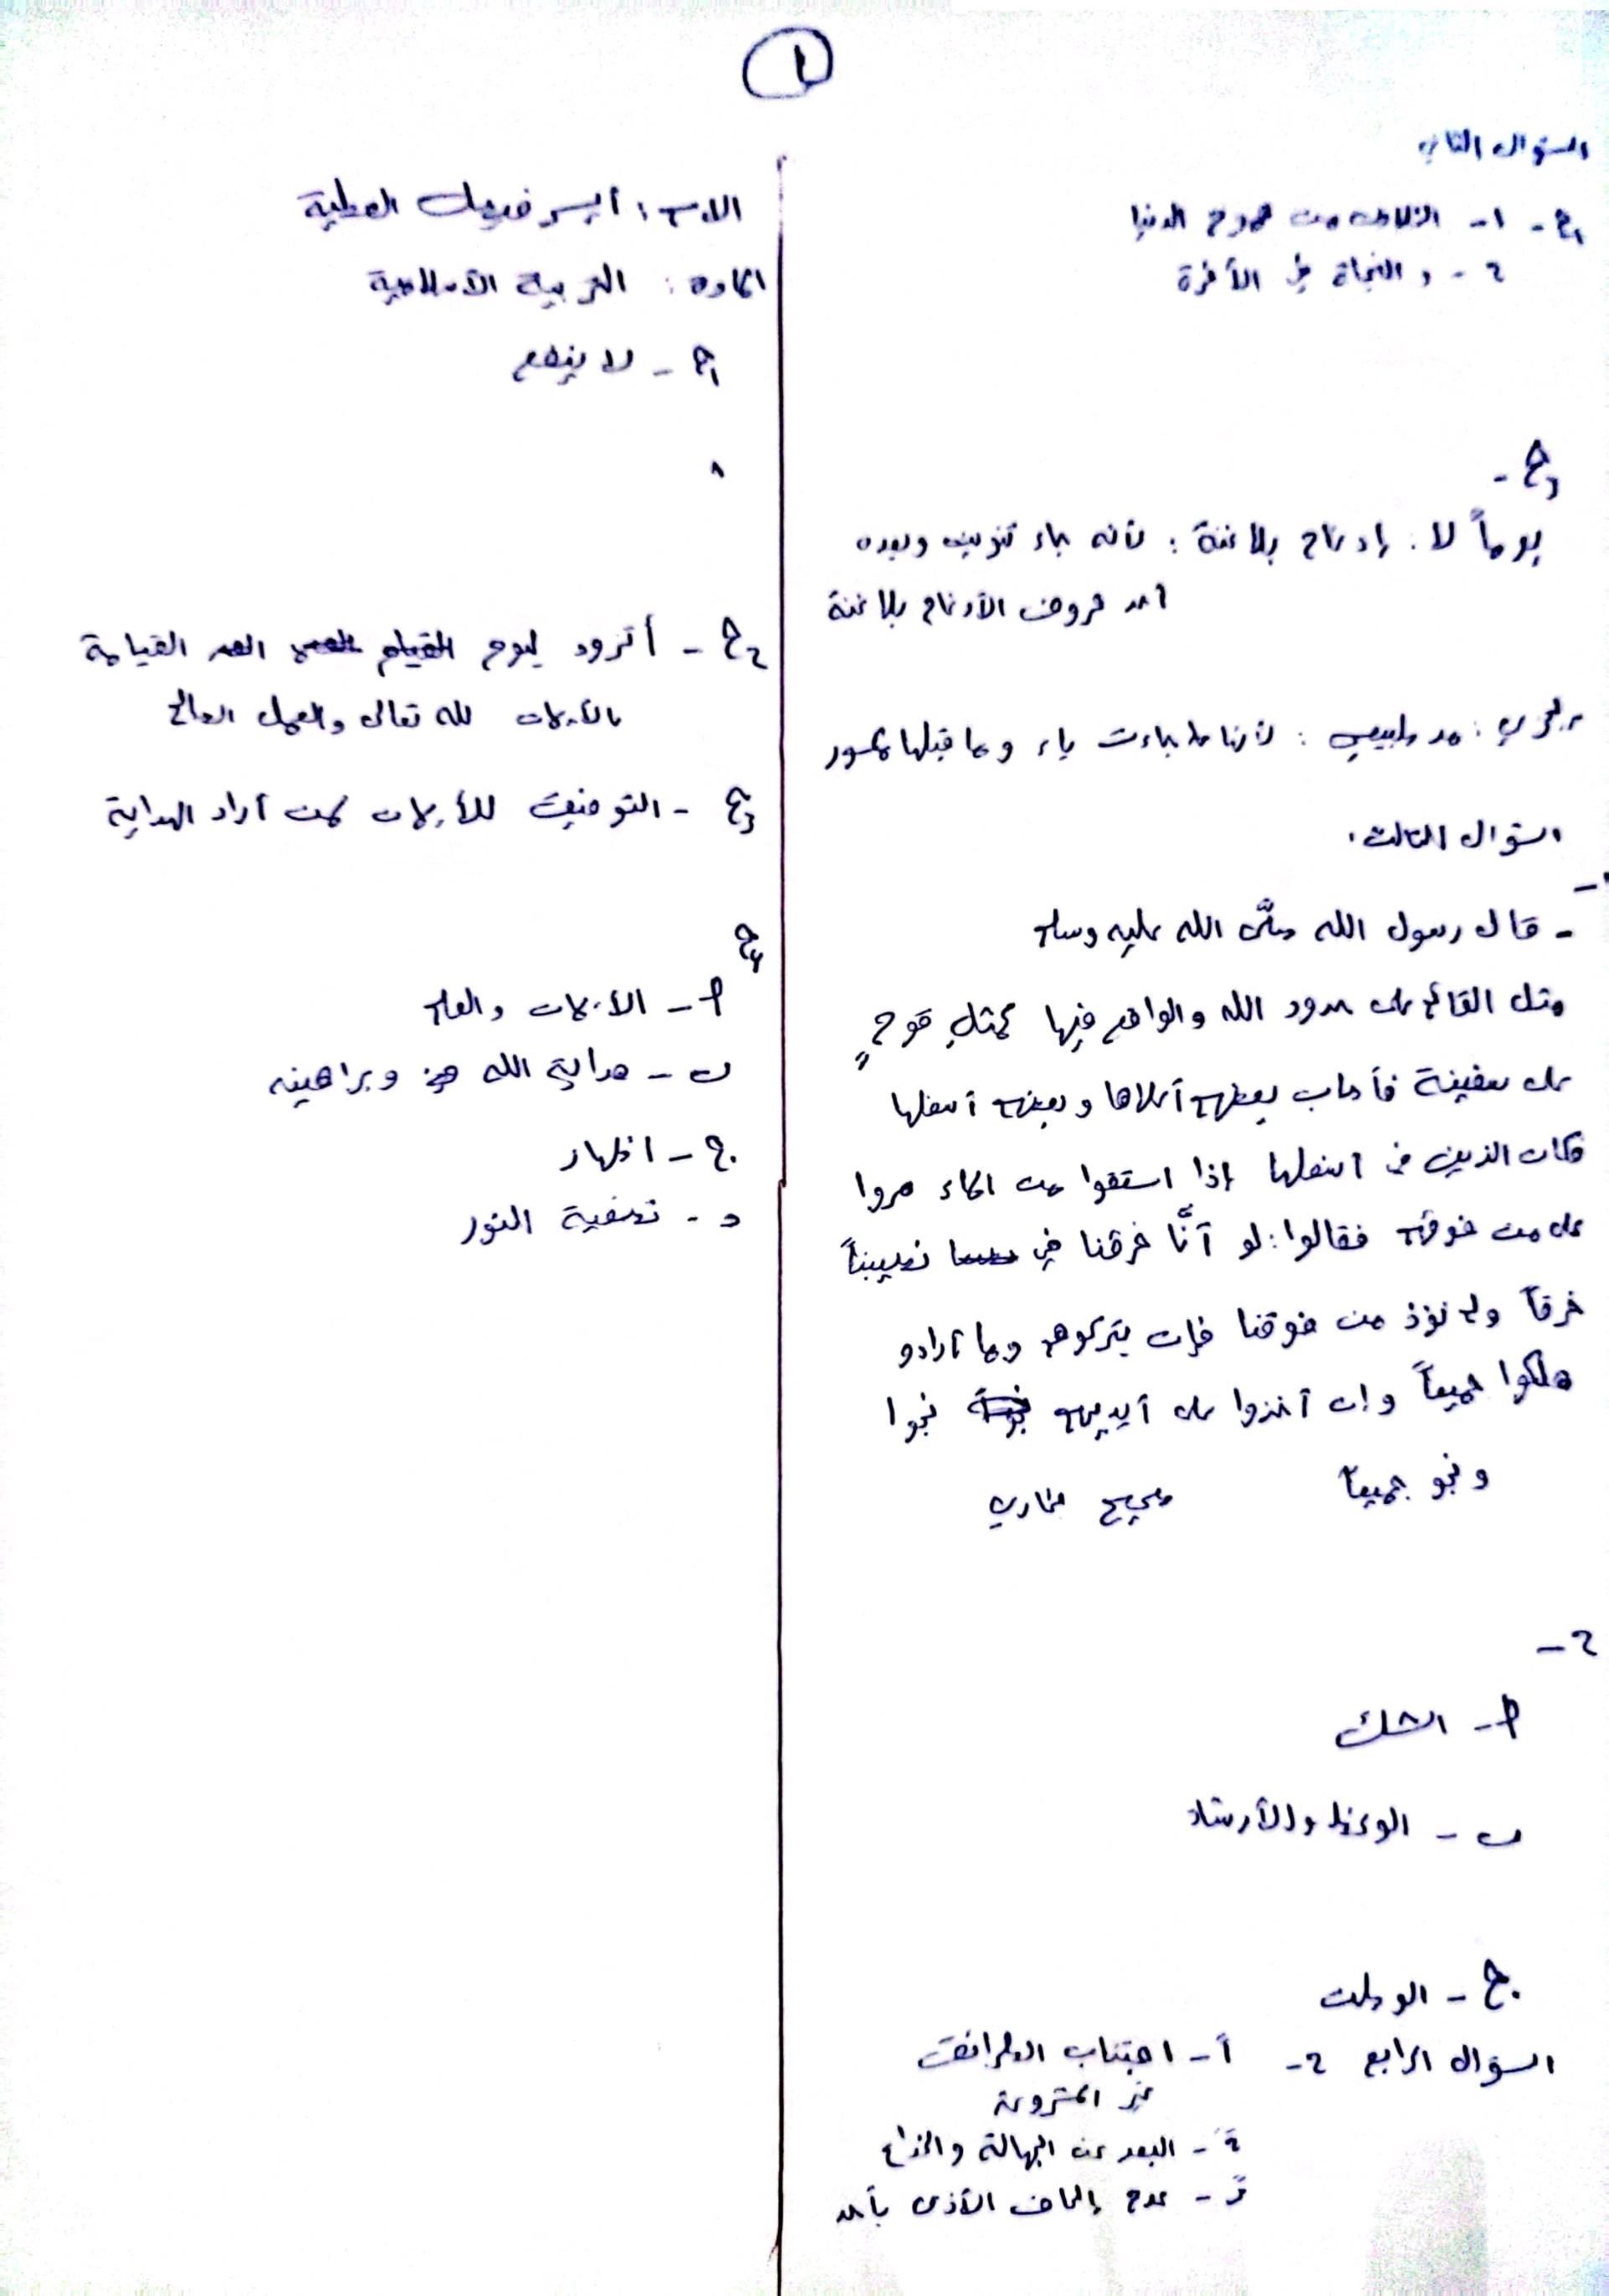 ١
السؤال الثاني
ج١ - ١- الخلاص من هموم الدنيا
٢ - و النجاة في الآخرة
ج٣ -
يوماً لا : إدغام بلا غنة : لأنه جاء تنوين وبعده
أحد حروف الأدغام بلا غنة
تجزي : مد طبيعي : لأنها جاءت ياء وما قبلها مكسور
السؤال الثالث :
١-
- قال رسول الله صلَّى الله عليه وسلم
مثل القائم على حدود الله والواقع فيها كمثلِ قومٍ
على سفينة فأصاب بعضهم أعلاها وبعضهم أسفلها
فكان الذين في أسفلها إذا استقوا من الماء مروا
على من فوقهم فقالوا : لو أنَّا خرقنا في نصيبناً
خرقاً ولم نؤذ من فوقنا فإن يتركوهم وما أرادو
هلكوا جميعاً وإن أخذوا على أيديهم نجوا
ونجو جميعاً صحيح بخاري
٢ -
أ - الشك
ب - الوعظ والأرشاد
ج - الوطن
السؤال الرابع ٢- أً - اجتناب الطرائق
غير المشروعة
٢ً - البعد عن الجهالة والخداع
٣ً - عدم إلحاق الأذى بأحد
الاسم : أيسر فيصل العطية
المادة : التربية الأسلامية
ج١ - لا ينفع
ج٢ - أتزود ليوم القيامة
بالأيمان لله تعالى والعمل الصالح
ج٣ - التوفيق للأيمان لمن أراد الهداية
ج٤
أ - الأيمان والعلم
ب - هداية الله وبراهينه
ج - اظهار
د - تصفية النور